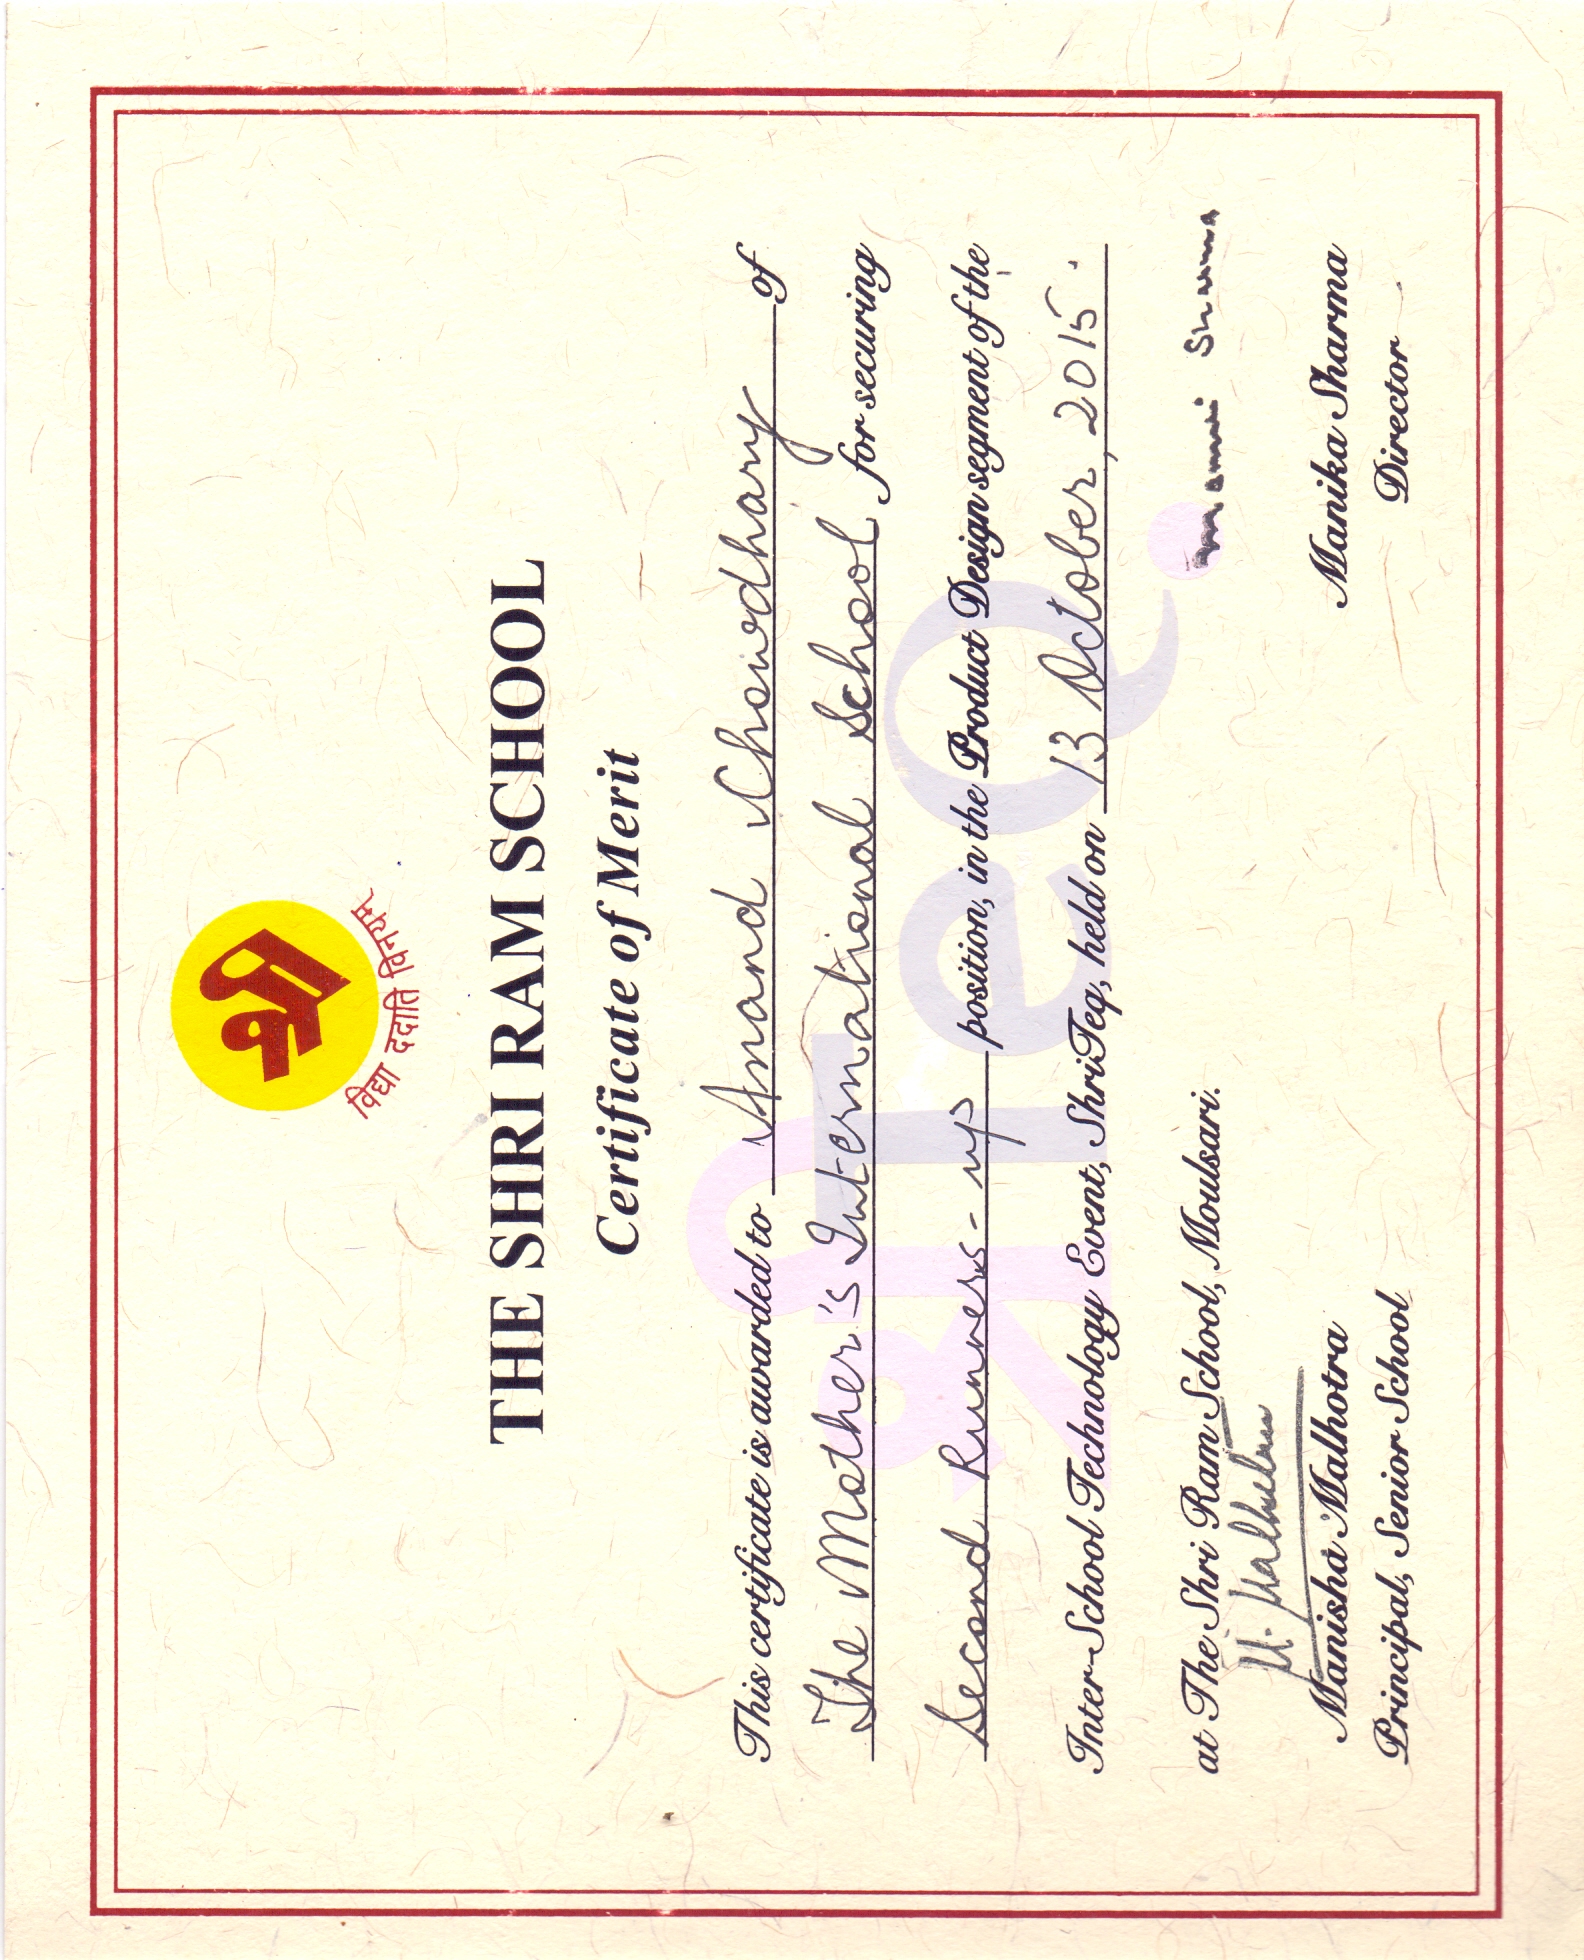 श्री
विद्या ददाति विनयम्
THE SHRI RAM SCHOOL
Certificate of Merit
This certificate is awarded to Anand Chowdhary of
The Mother's International School for securing
Second Runners-up position, in the Product Design segment of the
Inter-School Technology Event, ShriTeq, held on 13 October, 2015.
at The Shri Ram School, Moulsari.
श्रीTeQ.
M. Malhotra
Sharma
Manisha Malhotra
Manika Sharma
Principal, Senior School
Director